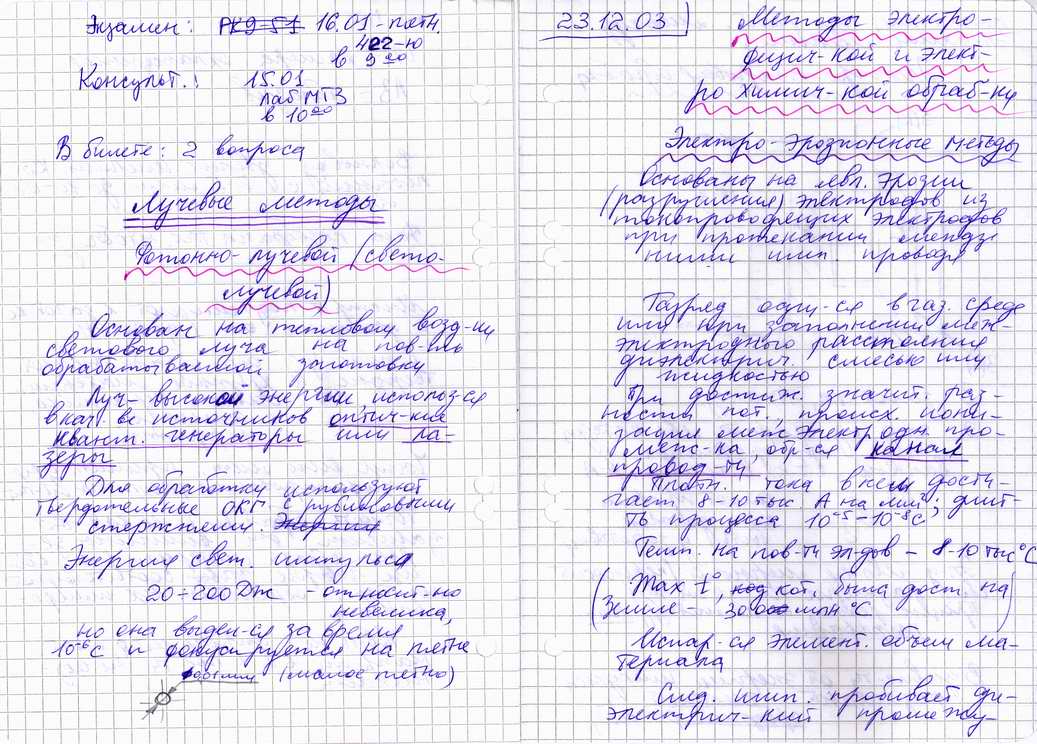 Экзамен: РК9-51 16.01-пятн.
422-ю
в 9 00
Консульт.: 15.01
лаб МТ3
в 10 00
В билете: 2 вопроса
Лучевые методы
Фотонно-лучевой (свето-
лучевой)
Основан на тепловом возд-ии
светового луча на пов-ть
обрабатываемой заготовки
Луч- высокой энергии использ-ся
в кач-ве источников оптич-кие
квант. генераторы или ла-
зеры
Для обработки используют
твердотельные ОКГ с рубиновыми
стержнями. Энергия
Энергия свет. импульса
20÷200Дж - относит-но
невелика,
но она выдел-ся за время
10-6с и фокусируется на пятне
0,01мм (малое пятно)
23.12.03
Методы электро-
физич-кой и элект-
ро химич-кой обраб-ки
Электро-эрозионные методы
Основаны на явл. эрозии
(разрушения) электродов из
токопроводящих электродов
при протекании между
ними имп. проводя
Разряд осущ-ся в газ. среде
или при заполнении меж-
электродного расстояния
диэлектрич. смесью или
жидкостью
При достиж. значит. раз-
ности пот., происх. иони-
зация межэлектродн. про-
меж-ка, обр-ся канал
провод-ти
Плотн. тока в нем дости-
гает 8-10 тыс. А на мм2, длит-
ть процесса 10-5-10-8с
Темп. на пов-ти эл-дов - 8-10 тыс °С
(Max t°, код кот. была дост. на
Земле - 30 млн °С)
Испар-ся элемент. объем ма-
териала
След. имп. пробивает ди-
электрич-кий промежу-